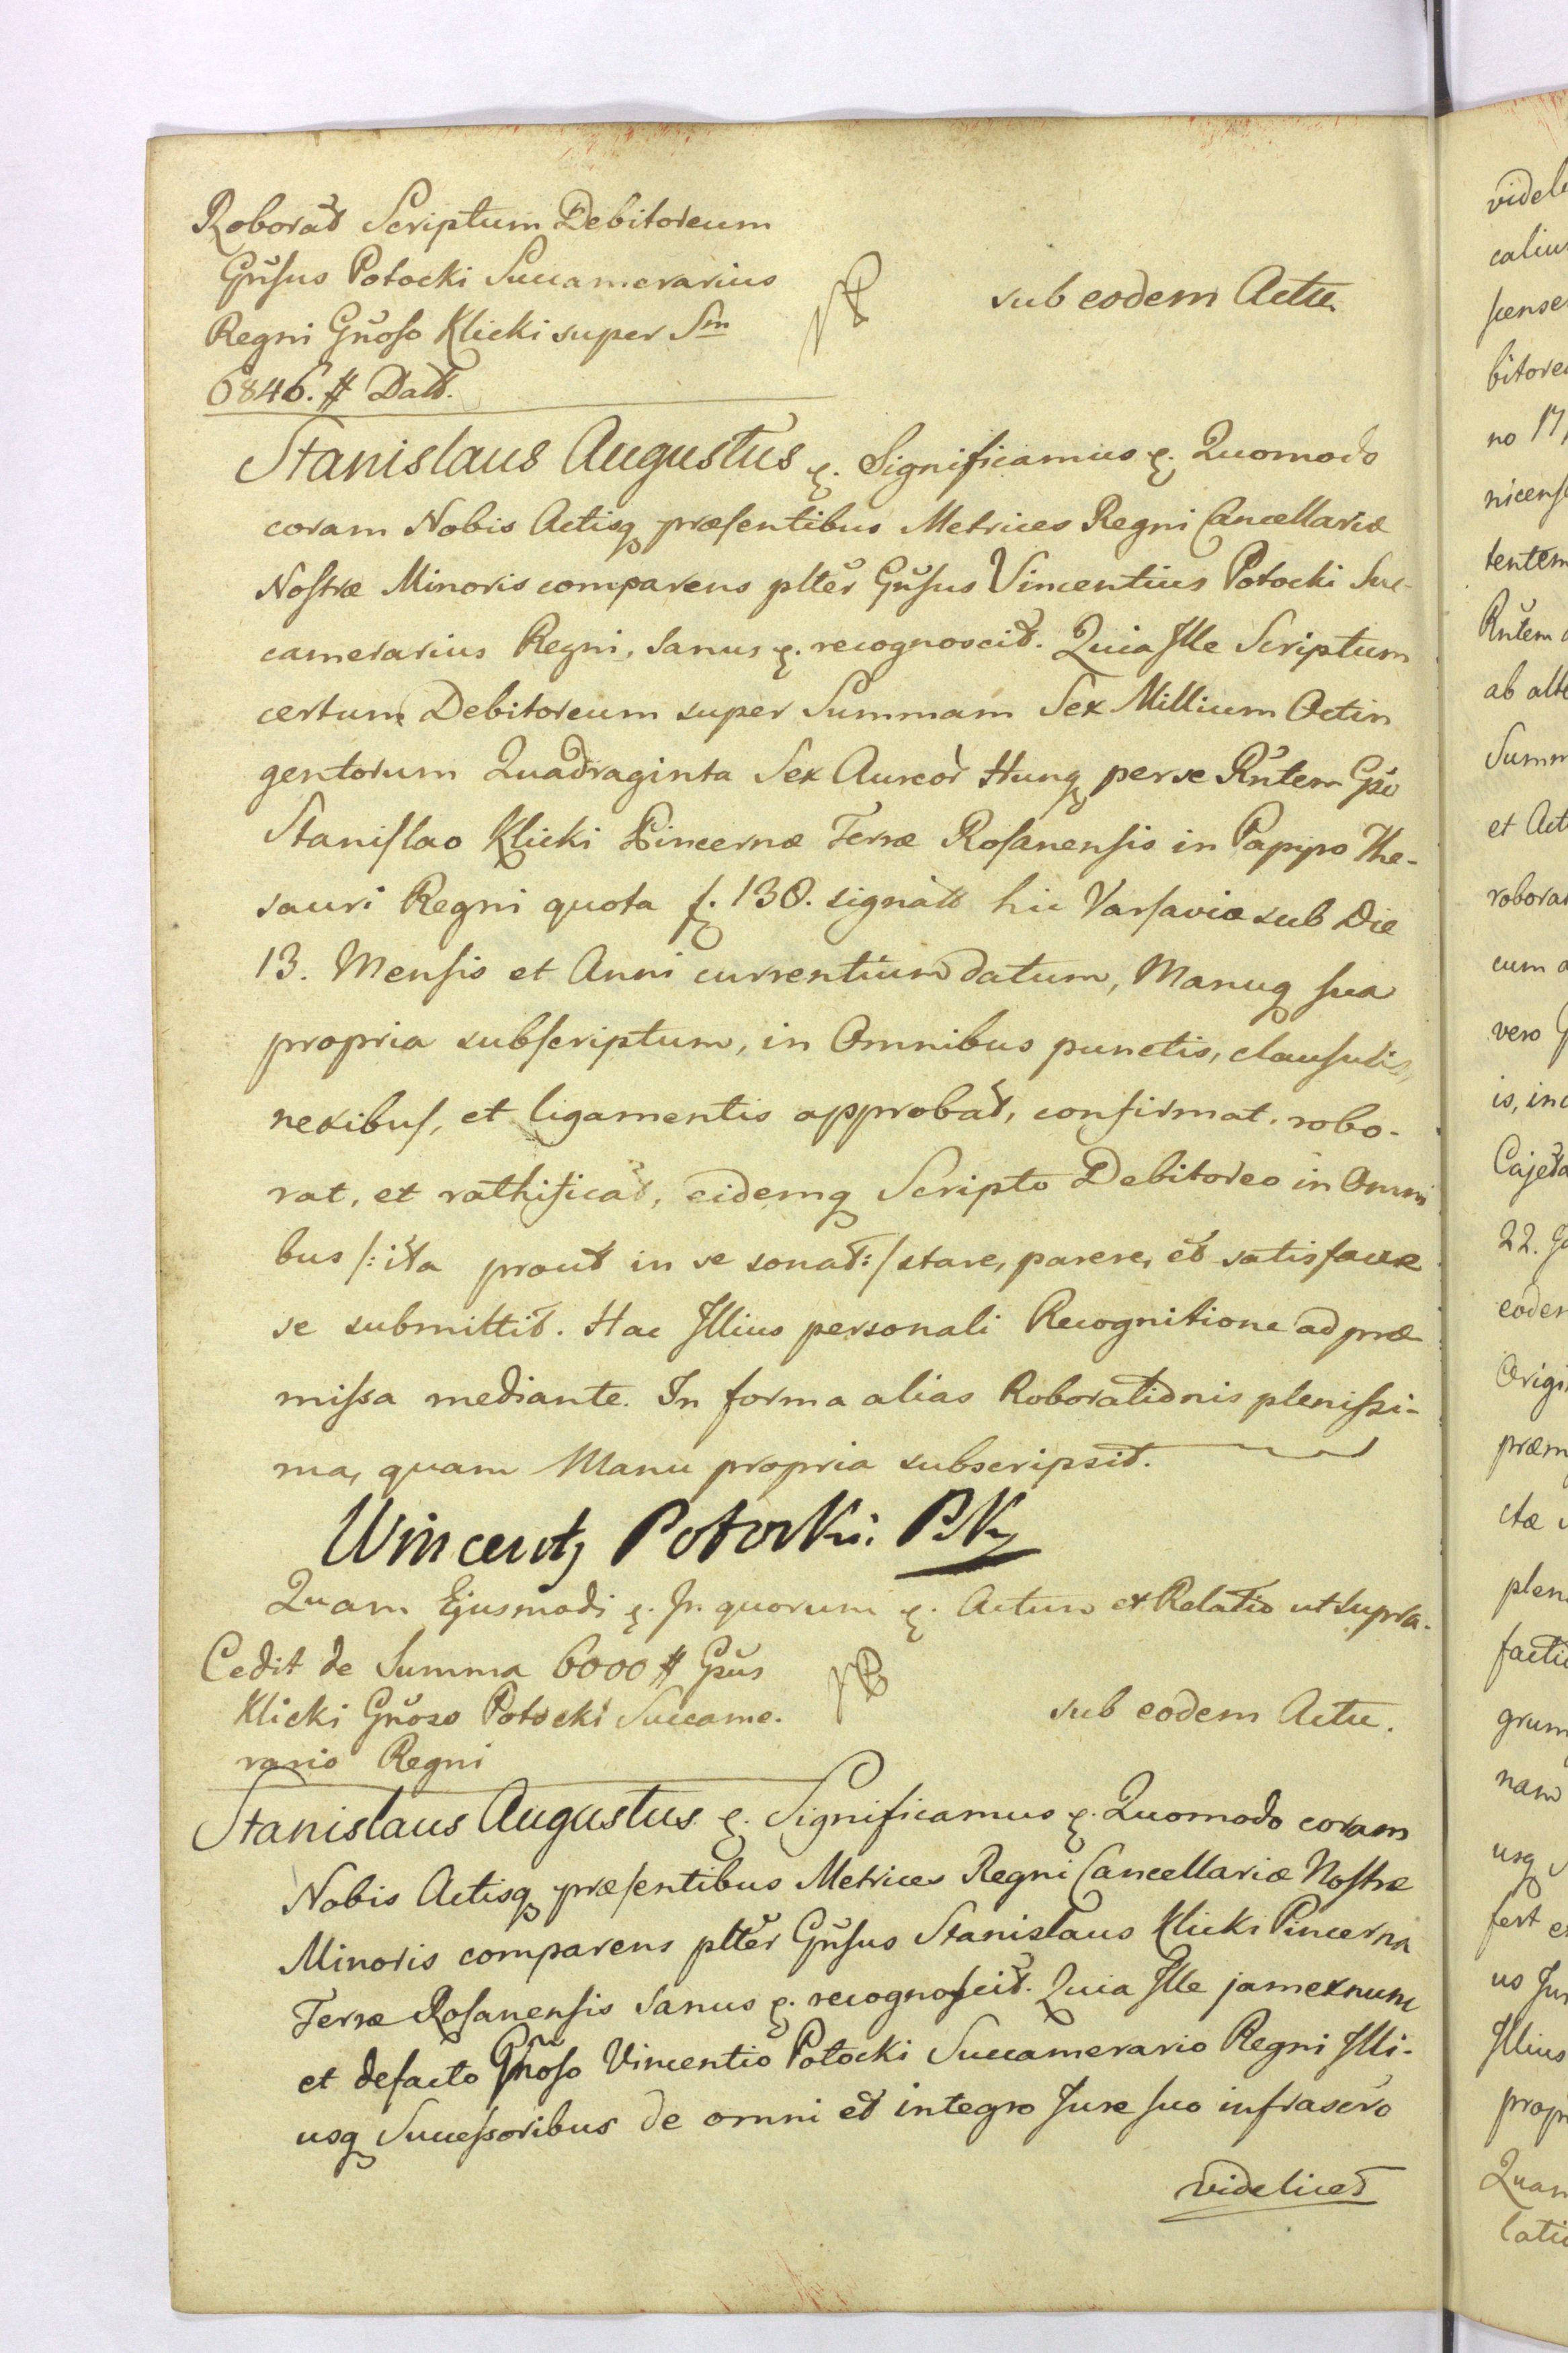 Roborat Scriptum Debitoreum
Gnsus Potocki Succamerarius
Regni Gnoso Klicki super Sm
6846. # Datt.
sub eodem Actu
Stanislaus Augustus &. Significamus &. Quomodo
coram Nobis Actisq præsentibus Metrices Regni Cancellariæ
Nostræ Minoris comparens plter Gnsus Vincentius Potocki Suc-
camerarius Regni, sanus &. recognoscit. Quia Ille Scriptum
certum Debitoreum super Summam Sex Millium Octin
gentorum Quadraginta Sex Aureor Hung per se Rntem Gso
Stanislao Klicki Pincernæ Terræ Rosanensis in Papyro The-
sauri Regni quota f. 130. signatt hic Varsaviæ sub Die
13. Mensis et Anni currentium datum, Manuq sua
propria subscriptum, in Omnibus punctis, clausulis,
nexibus, et ligamentis approbat, confirmat, robo-
rat, et rathificat, eidemq Scripto Debitoreo in Omni
bus /: ita prout in se sonat :/ stare, parere, et satisfacere
se submittit. Hac Illius personali Recognitione ad præ
missa mediante. In forma alias Roborationis plenissi-
ma, quam Manu propria subscripsit.
Wincenty Potocki. PK
Quam Ejusmodi &. In quorum &. Actum et Relatio ut supra.
Cedit de Summa 6000 # Gsus
Klicki Gnoso Potocki Succame-
rario Regni
sub eodem Actu.
Stanislaus Augustus &. Significamus &. Quomodo coram
Nobis Actisq præsentibus Metrices Regni Cancellariæ Nostræ
Minoris comparens plter Gnsus Stanislaus Klicki Pincerna
Terræ Rosanensis sanus &. recognoscit. Quia Ille jam ex nunc
et defacto Gnoso Vincentio Potocki Succamerario Regni Illi-
usq Successoribus de omni et integro Jure suo infrascro
videlicet